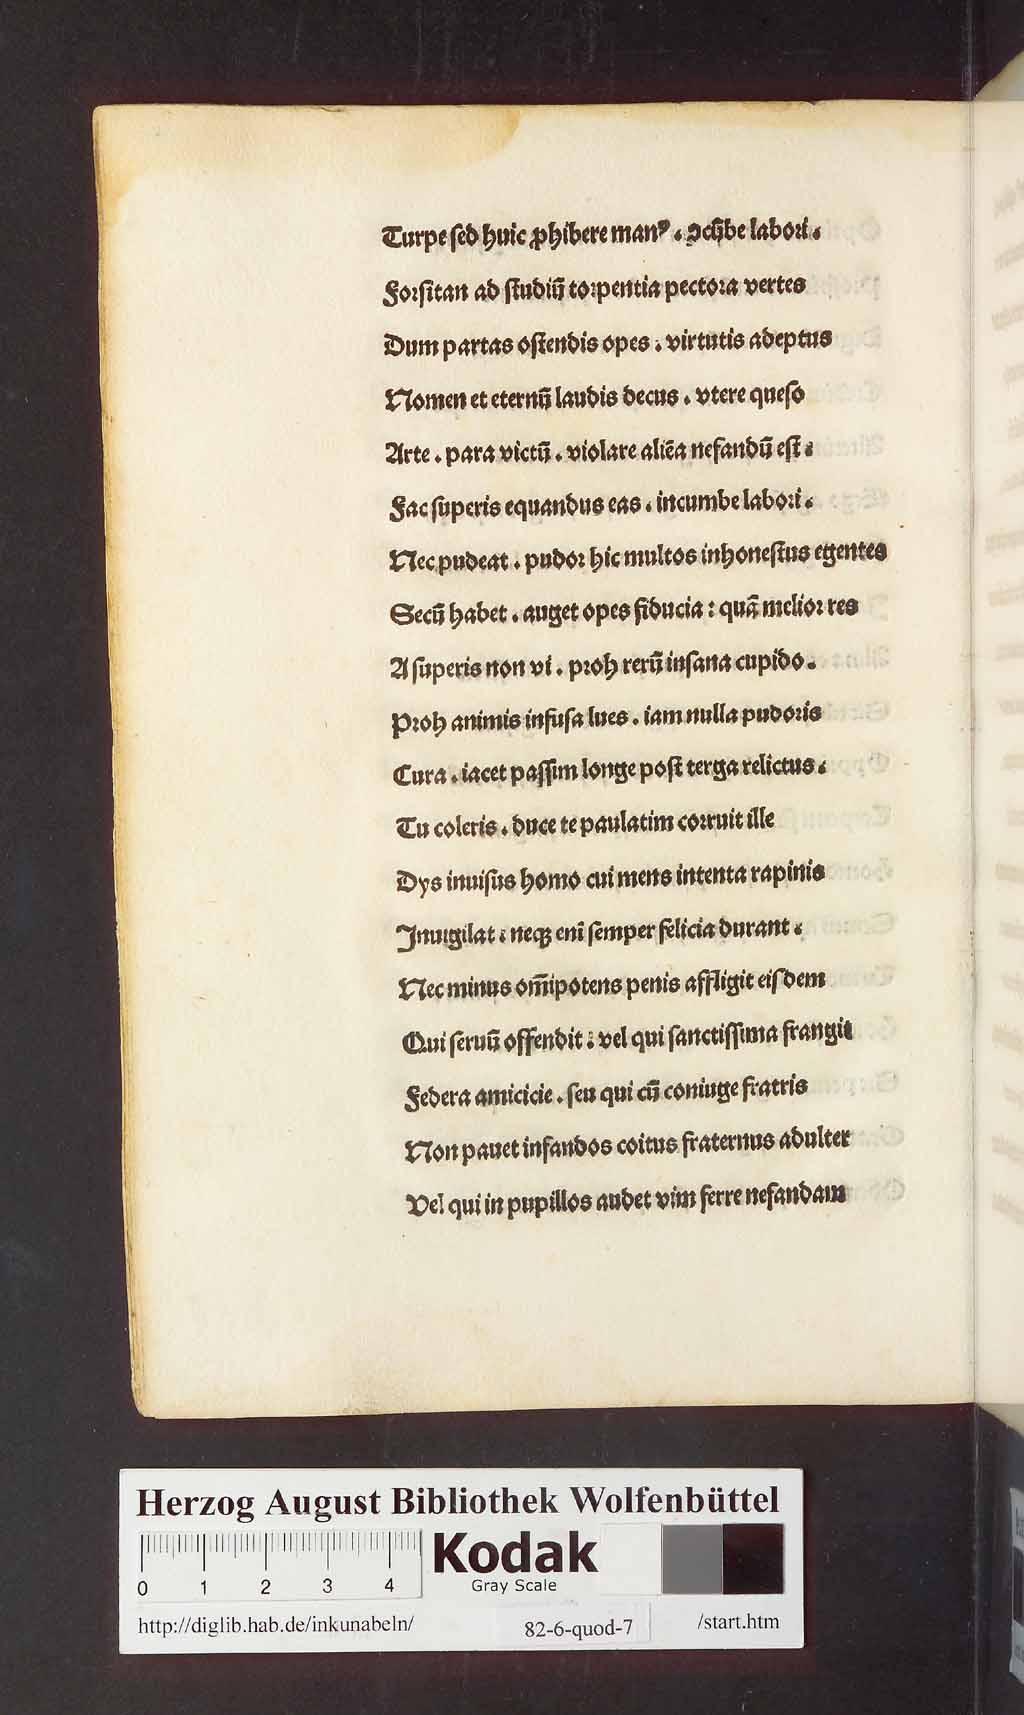 Turpe sed huic ꝓhibere manꝰ . ꝯcūbe labori .
Forsitan ad studiū torpentia pectora vertes
Dum partas ostendis opes . virtutis adeptus
Nomen et eternū laudis decus . vtere queso
Arte . para victū . violare aliēa nefandū est .
Fac superis equandus eas . incumbe labori .
Nec pudeat . pudor hic multos inhonestus egentes
Secū habet . auget opes fiducia : quā melior res
A superis non vi . proh rerū insana cupido .
Proh animis infusa lues . iam nulla pudoris
Cura . iacet passim longe post terga relictus .
Tu coleris . duce te paulatim corruit ille
Dys inuisus homo cui mens intenta rapinis
Inuigilat : neqꝫ enī semper felicia durant .
Nec minus om̄ipotens penis affligit eisdem
Qui seruū offendit : vel qui sanctissima frangit
Federa amicicie . seu qui cū coniuge fratris
Non pauet infandos coitus fraternus adulter
Vel qui in pupillos audet vim ferre nefandam
Herzog August Bibliothek Wolfenbüttel
0 1 2 3 4
Kodak
Gray Scale
http://diglib.hab.de/inkunabeln/ 82-6-quod-7 /start.htm